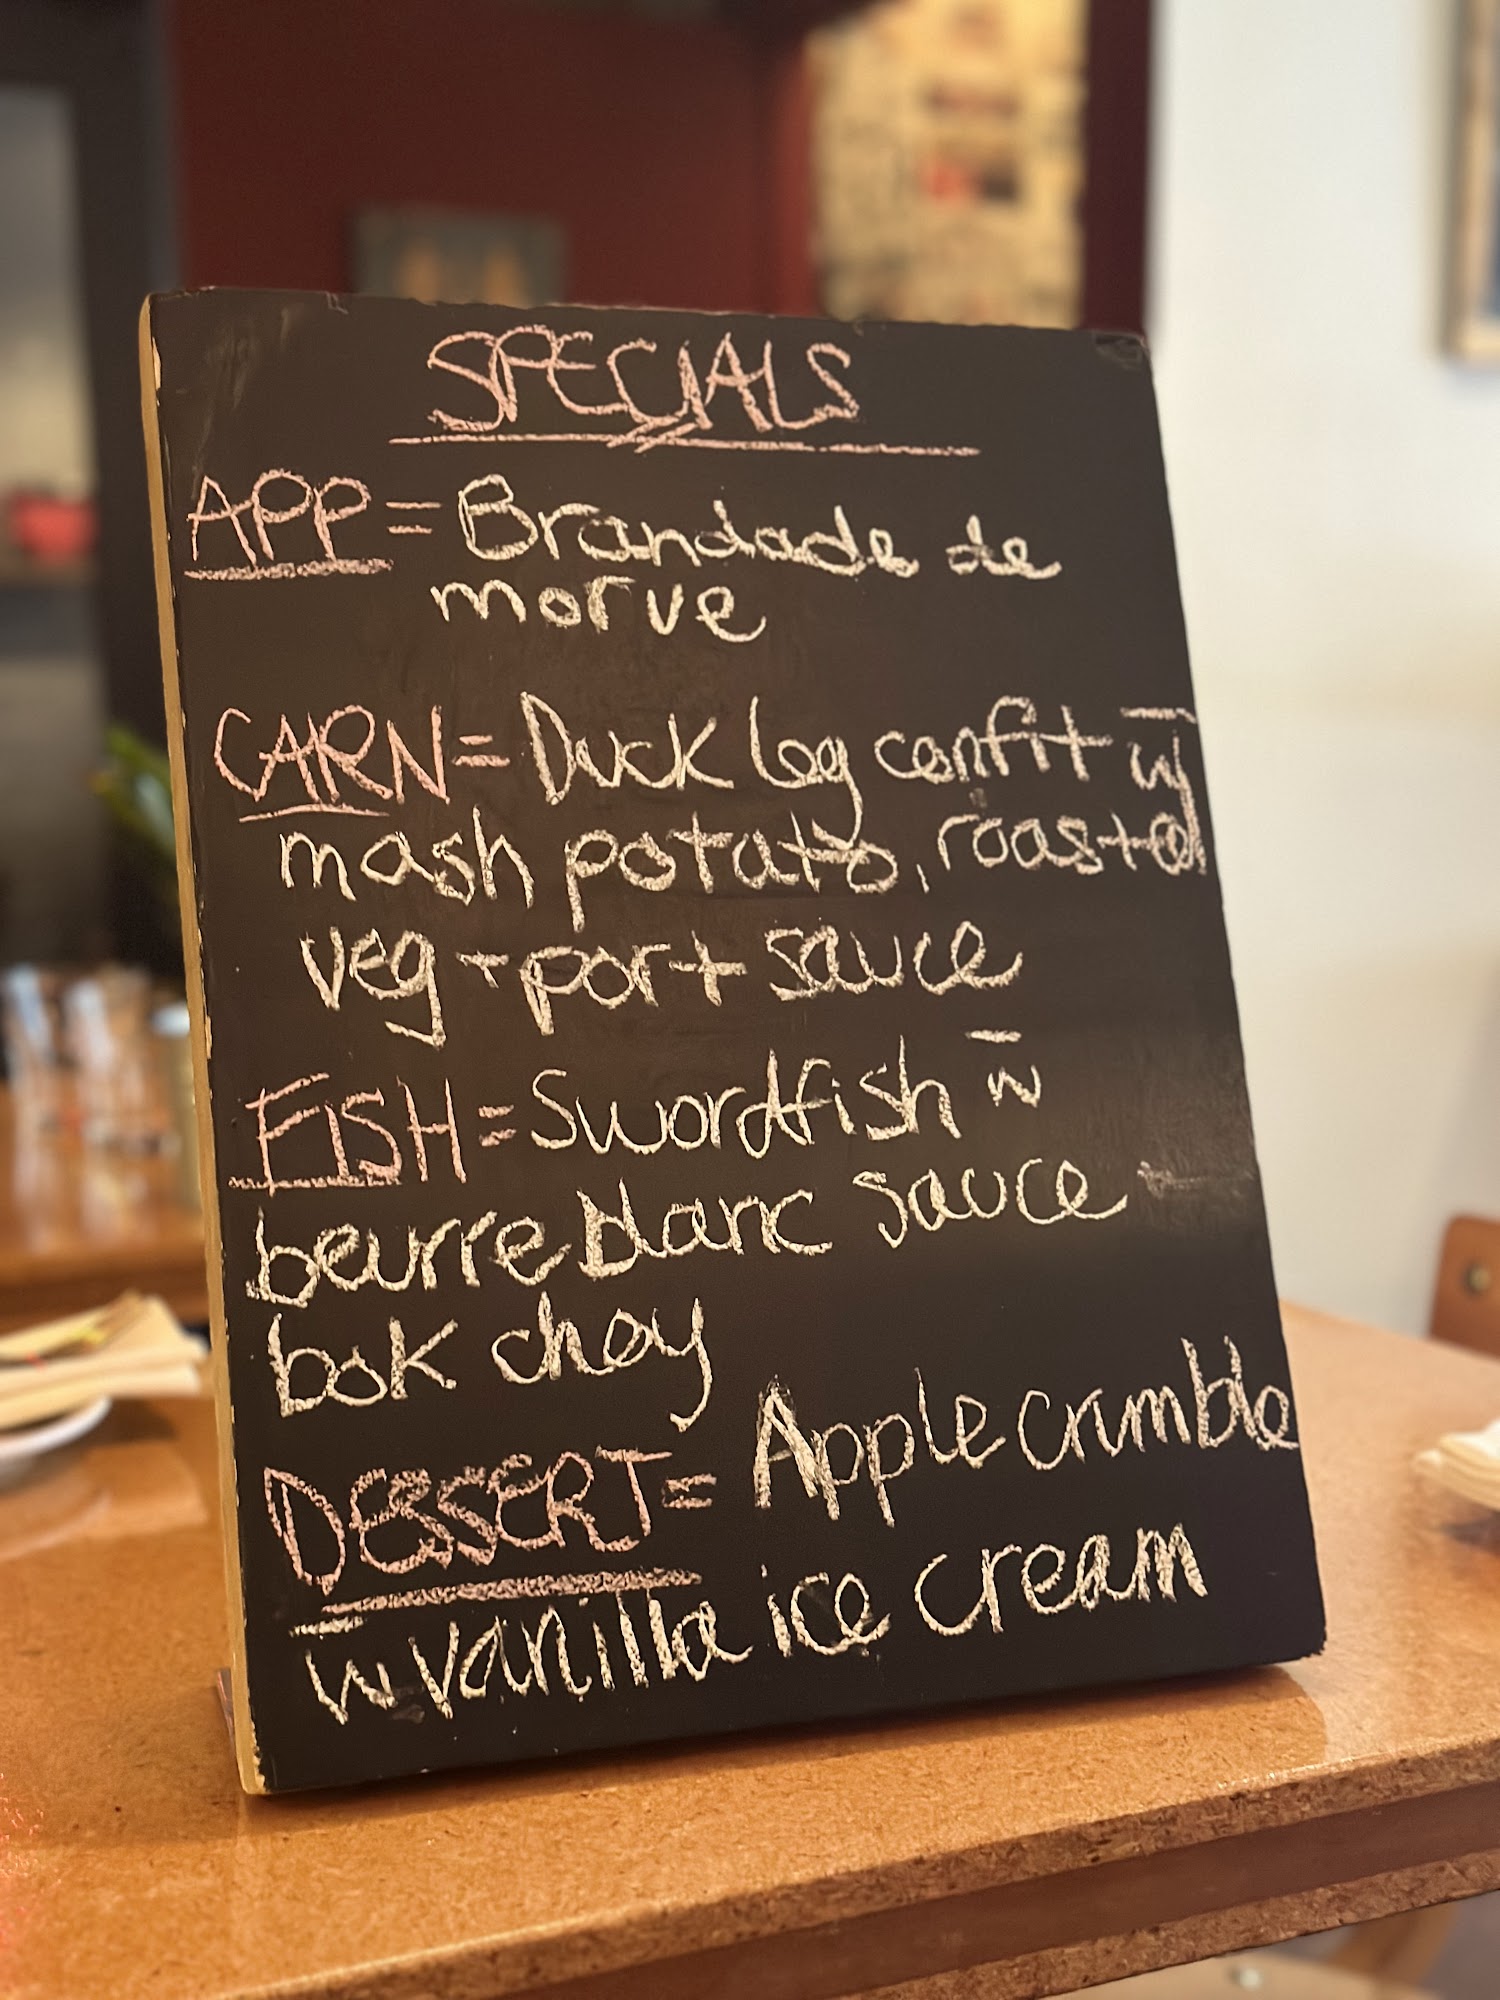 SPECIALS
APP = Brandade de
morve
CARN = Duck leg confit w̄
mash potato, roasted
veg + port sauce
FISH = Swordfish w̄
beurre blanc sauce
bok choy
DESSERT = Apple crumble
w̄ vanilla ice cream